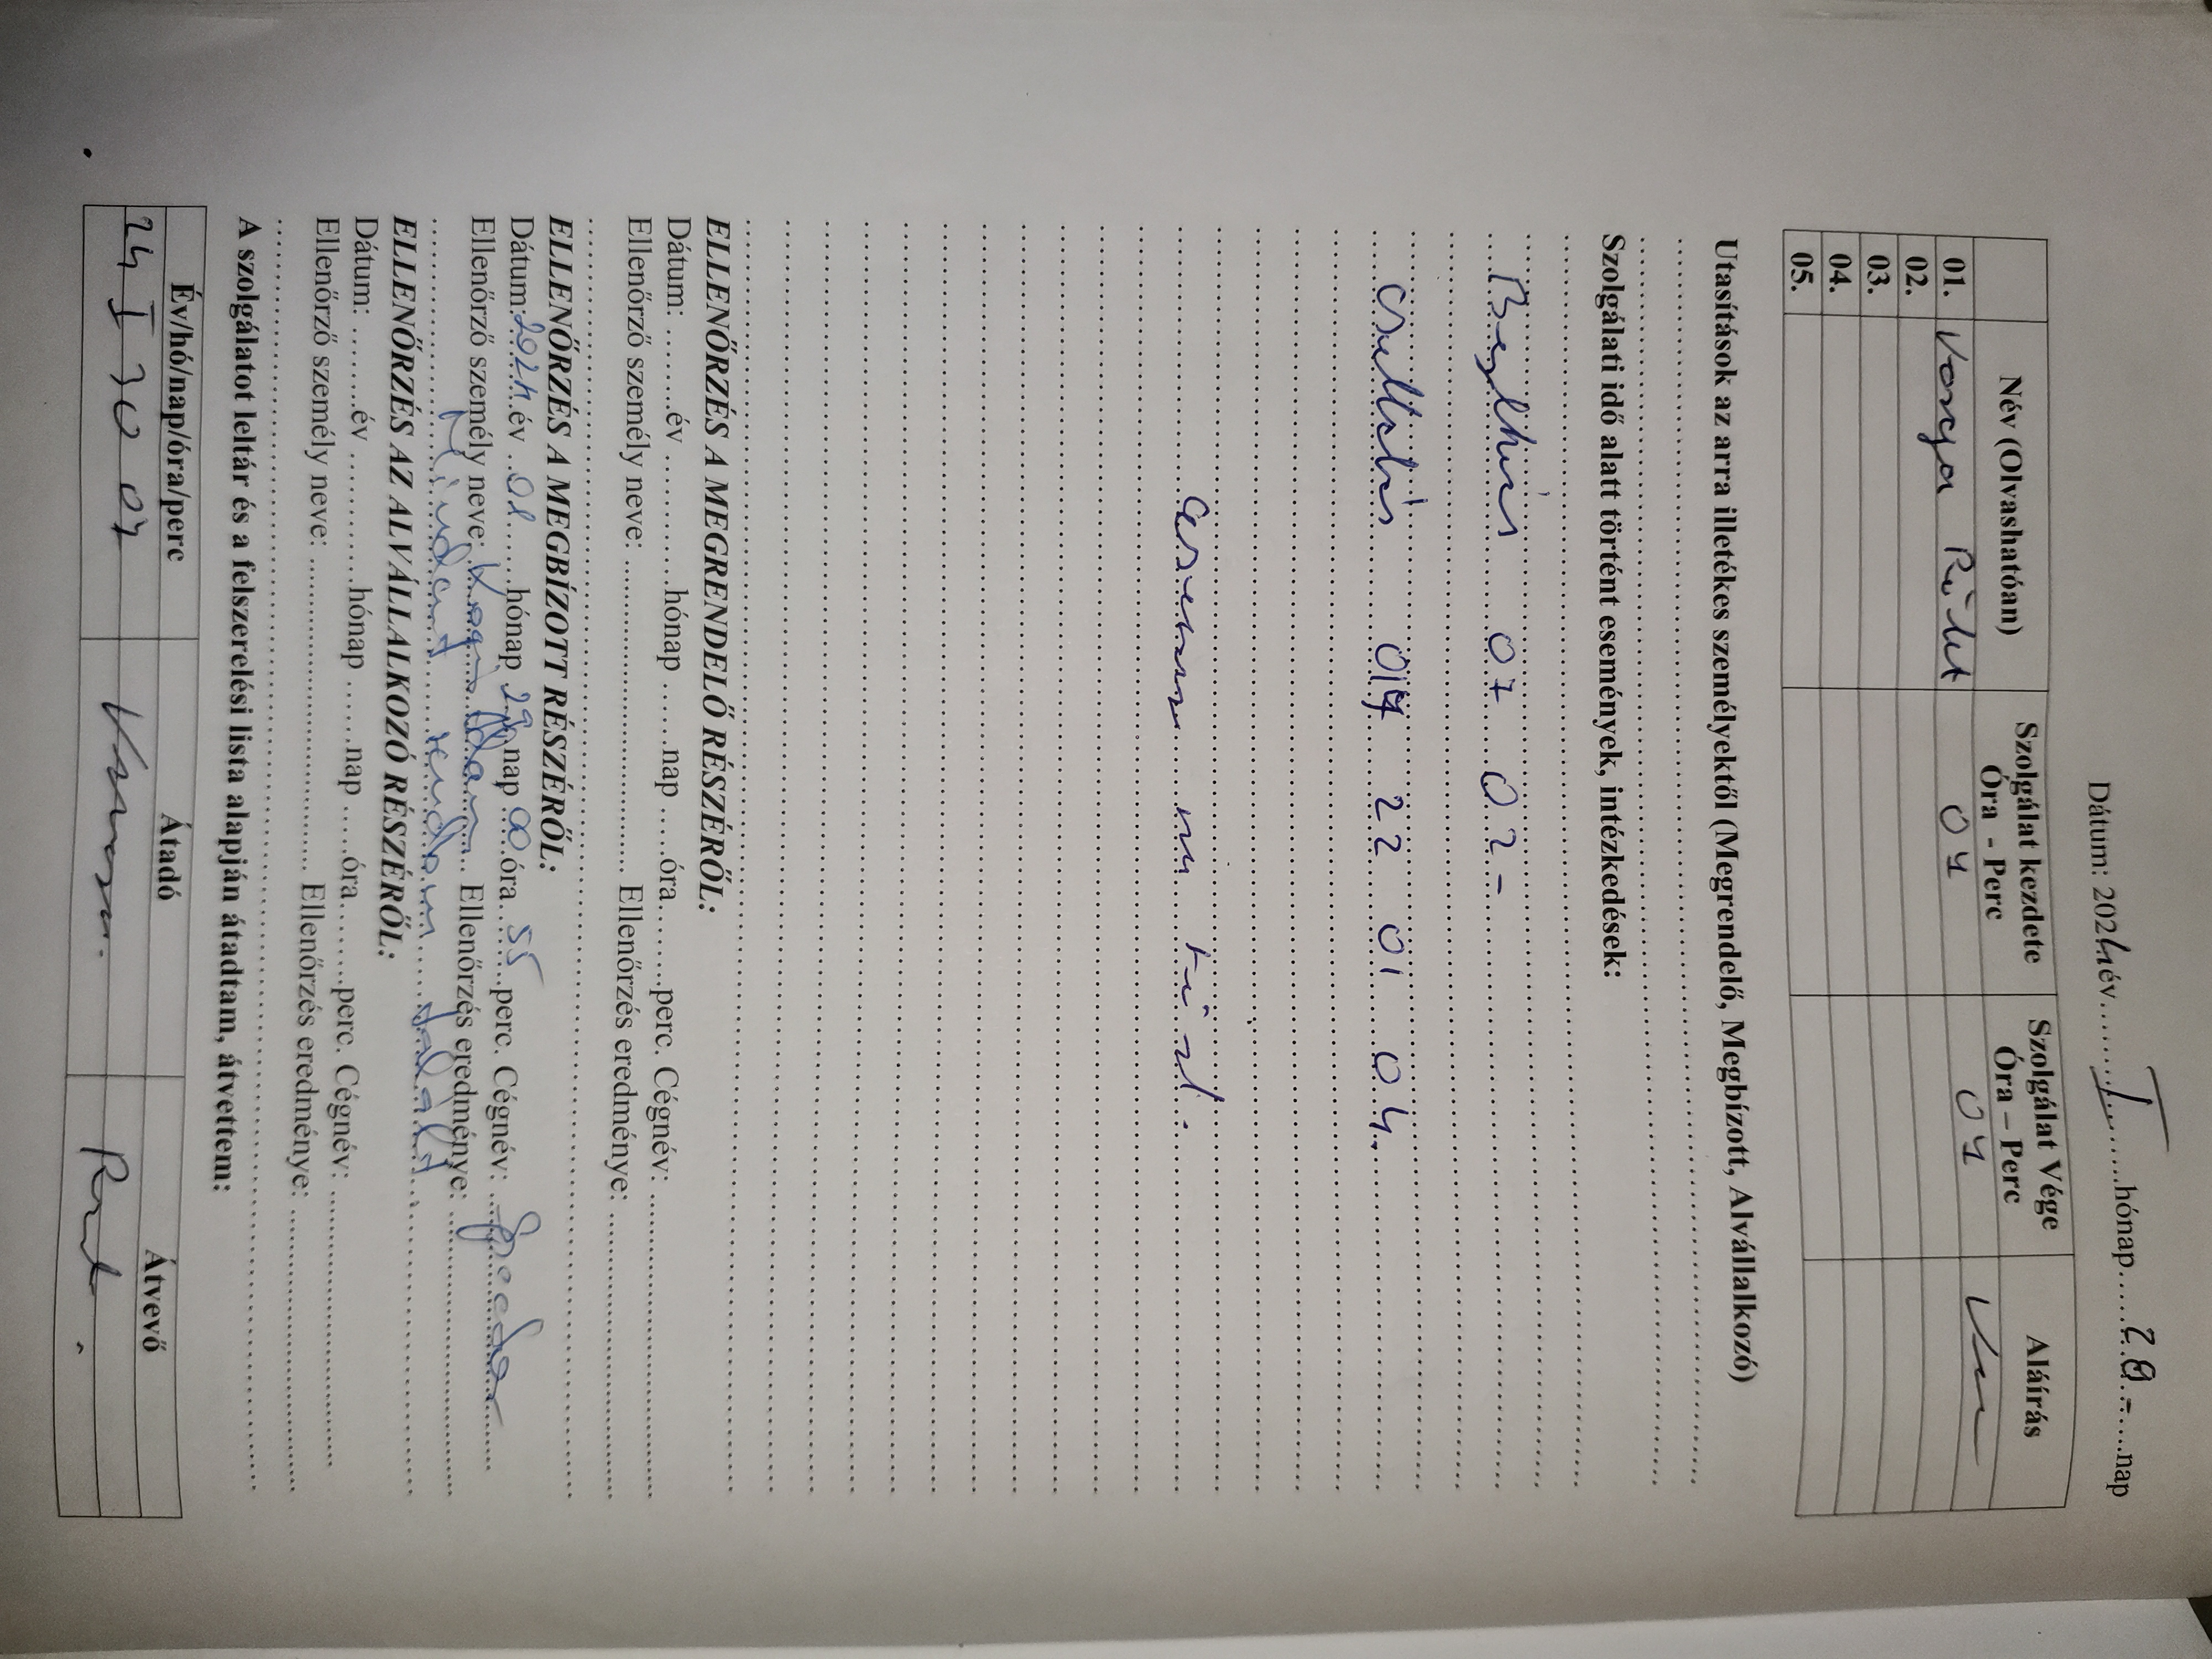 Dátum: 2024 év ........ I ........ hónap ...... 29.- ... nap
Név (Olvashatóan) Szolgálat kezdete Óra - Perc Szolgálat Vége Óra – Perc Aláírás
01. Varga 07 07
02.
03.
04.
05.
Utasítások az arra illetékes személyektől (Megrendelő, Megbízott, Alvállalkozó)
Szolgálati idő alatt történt események, intézkedések:
07 02-
22 01 04.
ELLENŐRZÉS A MEGRENDELŐ RÉSZÉRŐL:
Dátum: .......év ............hónap ......nap .....óra........perc. Cégnév: ................................
Ellenőrző személy neve: ................................ Ellenőrzés eredménye: ................................
ELLENŐRZÉS A MEGBÍZOTT RÉSZÉRŐL:
Dátum: 2024 év .. 01 ......hónap 29 nap 00 óra 55 perc. Cégnév:
Ellenőrző személy neve: Ádám Ellenőrzés eredménye: ................................
Mindent rendben talált
ELLENŐRZÉS AZ ALVÁLLALKOZÓ RÉSZÉRŐL:
Dátum: ........év ............hónap ......nap .....óra........perc. Cégnév: ................................
Ellenőrző személy neve: ................................ Ellenőrzés eredménye: ................................
A szolgálatot leltár és a felszerelési lista alapján átadtam, átvettem:
Év/hó/nap/óra/perc Átadó Átvevő
24 I 30 07